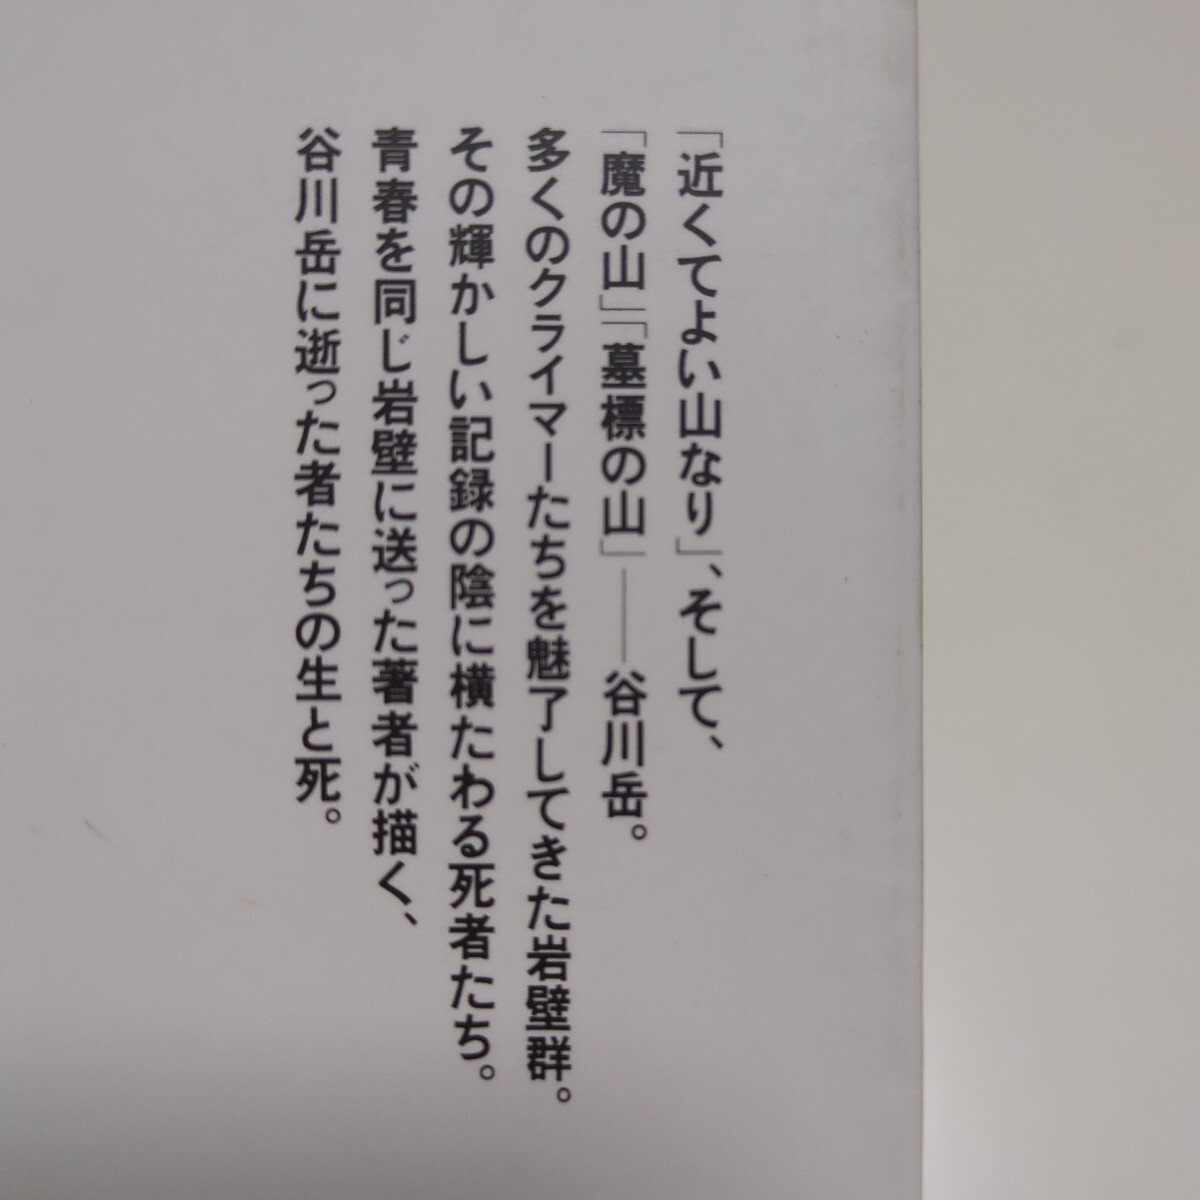 「近くてよい山なり」、そして、
「魔の山」「墓標の山」――谷川岳。
多くのクライマーたちを魅了してきた岩壁群。
その輝かしい記録の陰に横たわる死者たち。
青春を同じ岩壁に送った著者が描く、
谷川岳に逝った者たちの生と死。